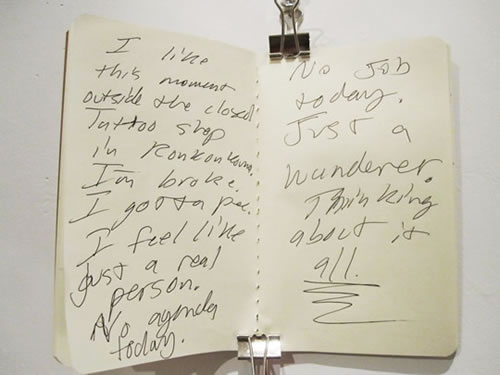 I like
this moment
outside the closed
Tattoo shop
in Ronkonkoma.
I'm broke.
I gotta pee.
I feel like
Just a real
person.
No agenda
today.
No Job
today.
Just a
wanderer.
Thinking
about it
all.